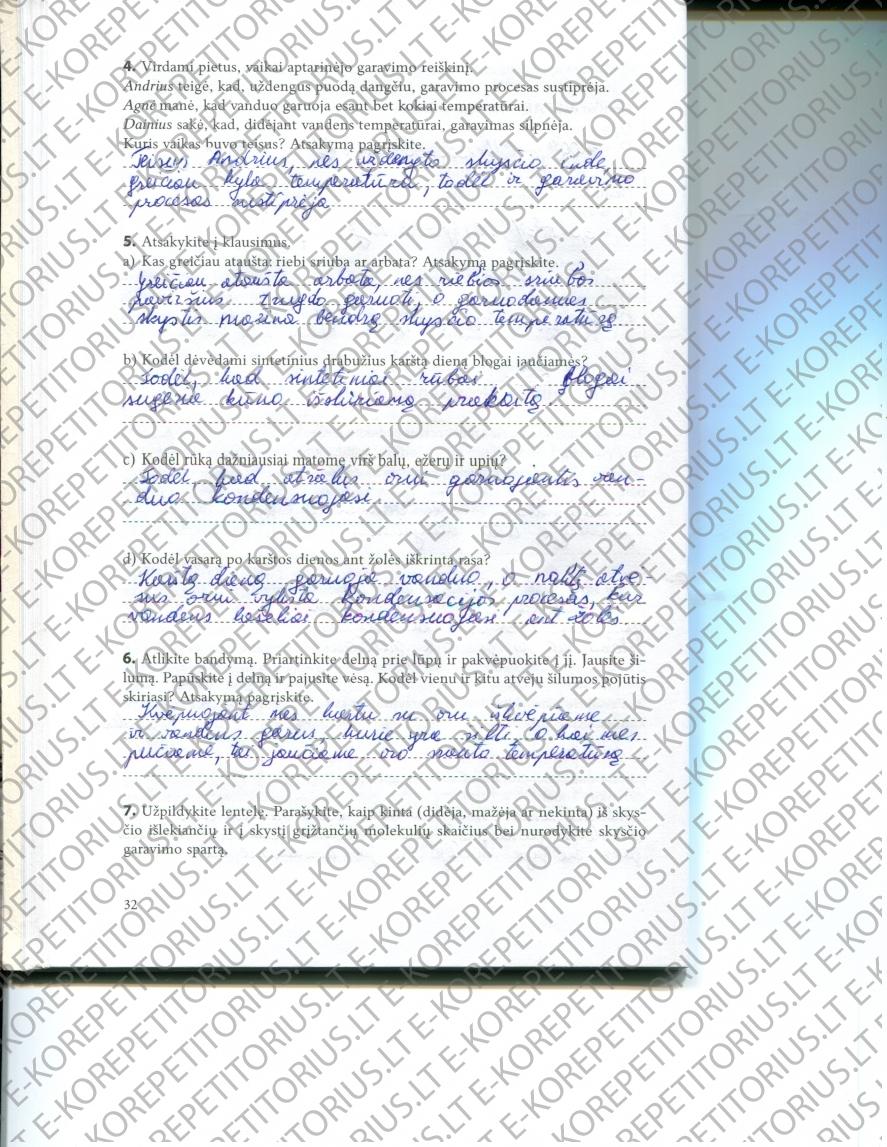 4. Virdami pietus, vaikai aptarinėjo garavimo reiškinį.
Andrius teigė, kad, uždengus puodą dangčiu, garavimo procesas sustiprėja.
Agnė manė, kad vanduo garuoja esant bet kokiai temperatūrai.
Dainius sakė, kad, didėjant vandens temperatūrai, garavimas silpnėja.
Kuris vaikas buvo teisus? Atsakymą pagrįskite.
Teisus Andrius, nes uždengto skysčio inde
greičiau kyla temperatūra, todėl ir garavimo
procesas sustiprėja
5. Atsakykite į klausimus.
a) Kas greičiau atauš­ta: riebi sriuba ar arbata? Atsakymą pagrįskite.
greičiau atausta arbata, nes riebios sriubos
paviršius trugdo garuoti, o garuodamas
skystis mažina bendrą skysčio temperatūrą
b) Kodėl dėvėdami sintetinius drabužius karštą dieną blogai jaučiamės?
Todėl, kad sintetiniai rūbai blogai
sugeria kūno išskiriamą prakaitą
c) Kodėl rūką dažniausiai matome virš balų, ežerų ir upių?
Todėl, kad atvėsus orui garuojantis van-
duo kondensuojasi
d) Kodėl vasarą po karštos dienos ant žolės iškrinta rasa?
Karštą dieną garuoja vanduo, o naktį atvė-
sus orui vyksta kondensacijos procesas, kur
vandens lašeliai kondensuojasi ant žolės
6. Atlikite bandymą. Priartinkite delną prie lūpų ir pakvėpuokite į jį. Jausite ši-
lumą. Papūskite į delną ir pajusite vėsą. Kodėl vienu ir kitu atveju šilumos pojūtis
skiriasi? Atsakymą pagrįskite.
Kvėpuojant mes kartu su oru iškvėpiame
ir vandens garus, kurie yra šilti. O kai mes
pučiame, tai jaučiame oro srauto temperatūrą
7. Užpildykite lentelę. Parašykite, kaip kinta (didėja, mažėja ar nekinta) iš skys-
čio išlekiančių ir į skystį grįžtančių molekulių skaičius bei nurodykite skysčio
garavimo spartą.
32
E-KOREPETITORIUS.LT